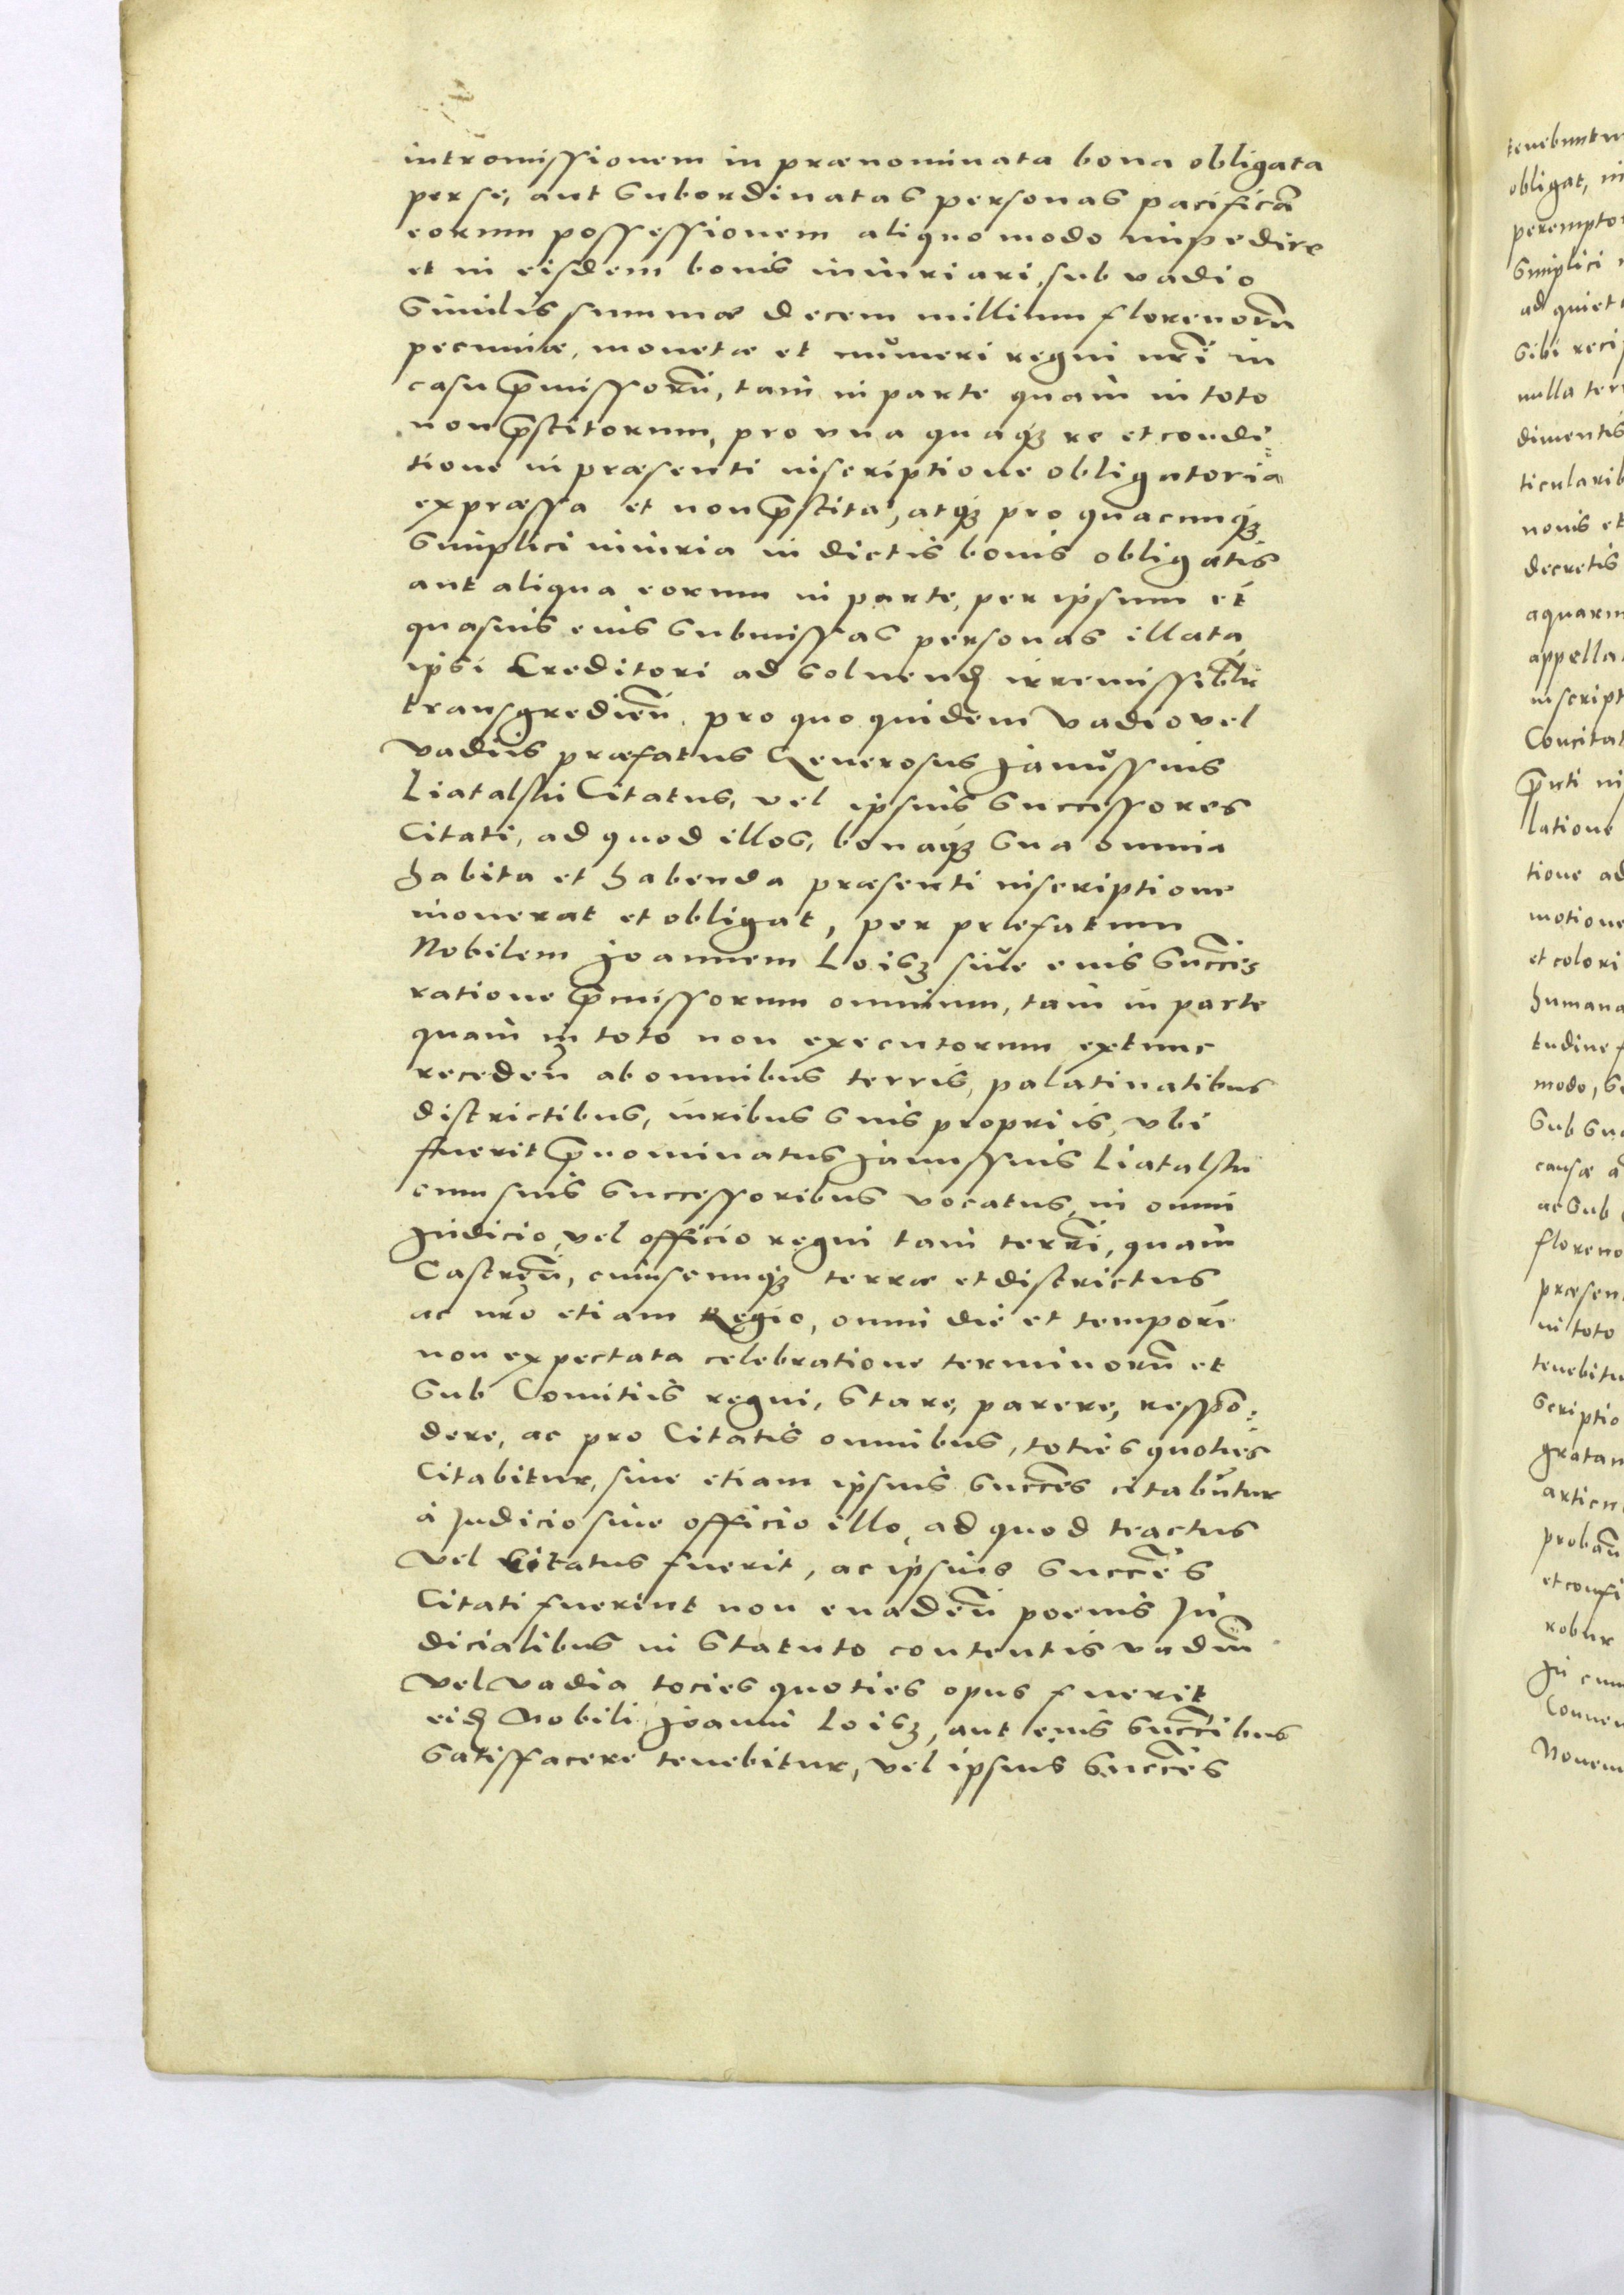 intromissionem in prænominata bona obligata
per se, aut subordinatas personas pacificã
eorum possessionem aliquo modo impedire
et in eisdem bonis iniuriari, sub vadio
similis summæ decem millium florenorũ
pecuniæ, monetæ et numeri regni nr̃i in
casu p̃missorũ, tam in parte quam in toto
non p̃stitorum, pro una quaqȝ re et condi⸗
tione in præsenti inscriptione obligatoria
expræssa et non p̃stita, atqȝ pro quacunqȝ
simplici iniuria in dictis bonis obligatis
aut aliqua eorum in parte, per ipsum et
quasuis eius submissas personas illata
ipsi Creditori ad soluend irremissibl̃r
transgredieñ. pro quo quidem vadio vel
vadiis præfatus Generosus Janussius
Liatalski Citatus, vel ipsius successores
Citati, ad quod illos, bonaqȝ sua omnia
habita et habenda præsenti inscriptione
inouerat et obligat, per præfatum
Nobilem Joannem Loisȝ siue eius succ̃es
ratione p̃missorum omnium, tam in parte
quam in toto non executorum extunc
recedeñ ab omnibus terris, palatinatibus
districtibus, iuribus suis propriis, vbi
fuerit p̃nominatus Janussius Liatalski
cum suis successoribus vocatus, in omni
Judicio, vel officio regni tam terrĩ, quam
Castreñ, cuiuscunqȝ terræ et districtus
ac nr̃o etiam Regio, omni die et tempore
non expectata celebratione terminorũ et
sub Comitiis regni, stare, parere, respõ⸗
dere, ac pro Citatis omnibus, toties quoties
Citabitur, siue etiam ipsius succ̃es citabũtur
à Judicio siue officio illo, ad quod tractus
vel Citatus fuerit, ac ipsius succ̃es
Citati fuerint non euadeñ poenis Ju
dicialibus in statuto contentis vadiũ
vel vadia tocies quoties opus fuerit
eid Nobili Joanni Loisȝ, aut eius succ̃ibus
satisfacere tenebitur, vel ipsius succ̃es
tenebuntu
obligat, in
perempto
simplici
ad quiet
sibi reci
nulla ter
dimentis
ticularib
nouis et
decretis
aquarum
appella
inscript
Concitat
p̃nti in
latione
tione ad
motione
et colori
humana
tudine
modo, se
sub su
causæ a
ac sub
floreno
præsen
in toto
tenebitu
scriptio
gratam
articu
probañ
et confi
robur
In cuiu
Conuen
Nouem